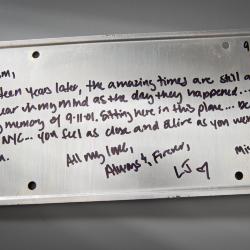 9
m,
teen years later, the amazing times are still a
ear in my mind as the day they happened...
g memory of 9-11-01. Sitting here in this place...
NYC... you feel as close and alive as you were
All my love,
Always & Forever,